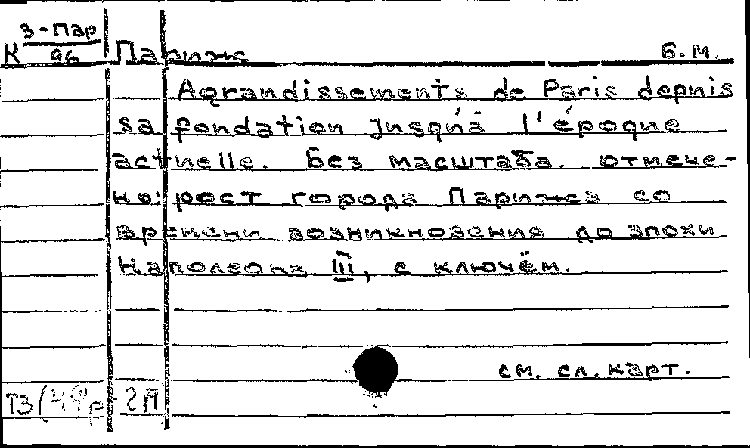 З-Пар
К 96 Париж Б.М.
Agrandissements de Paris depuis
sa fondation jusqu'à l'époque
actuelle. Без масштаба. отмече-
но: рост города Парижа со
времени возникновения до эпохи
Наполеона III, с ключём.
см. сл. карт.